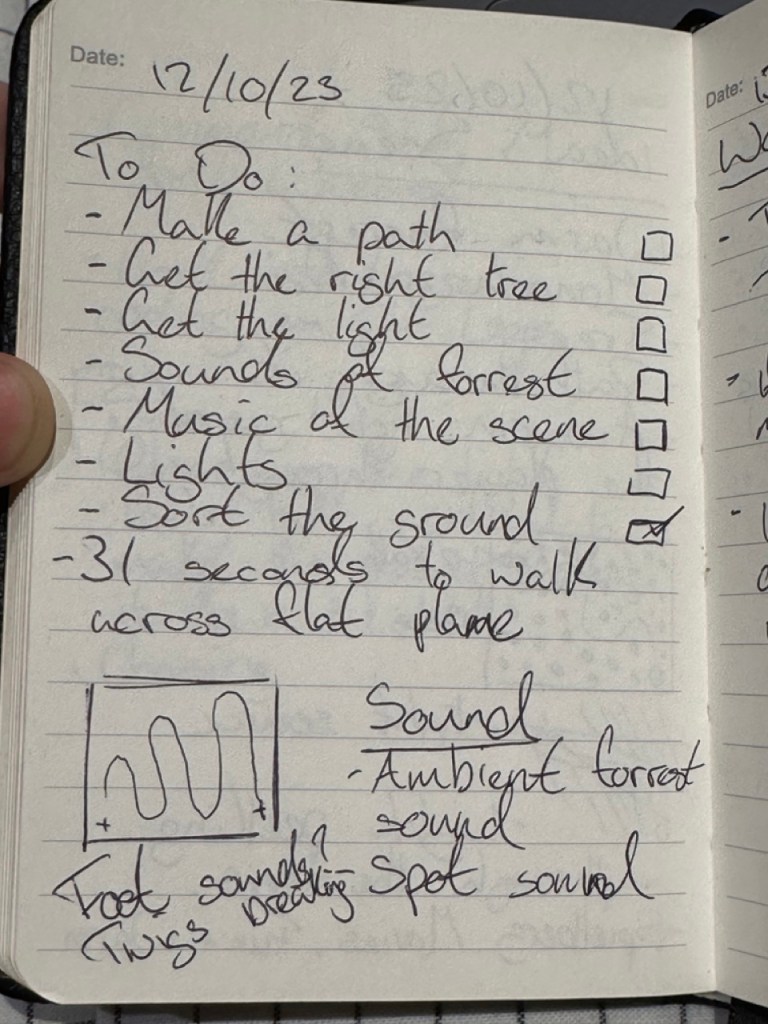 Date: 12/10/23
To Do:
- Make a path
- Get the right tree
- Get the light
- Sounds of forrest
- Music of the scene
- Lights
- Sort the ground
- 31 seconds to walk
across flat plane
Sound
- Ambient forrest
sound
Spot sound
Foot sounds?
Twigs breaking
Date: